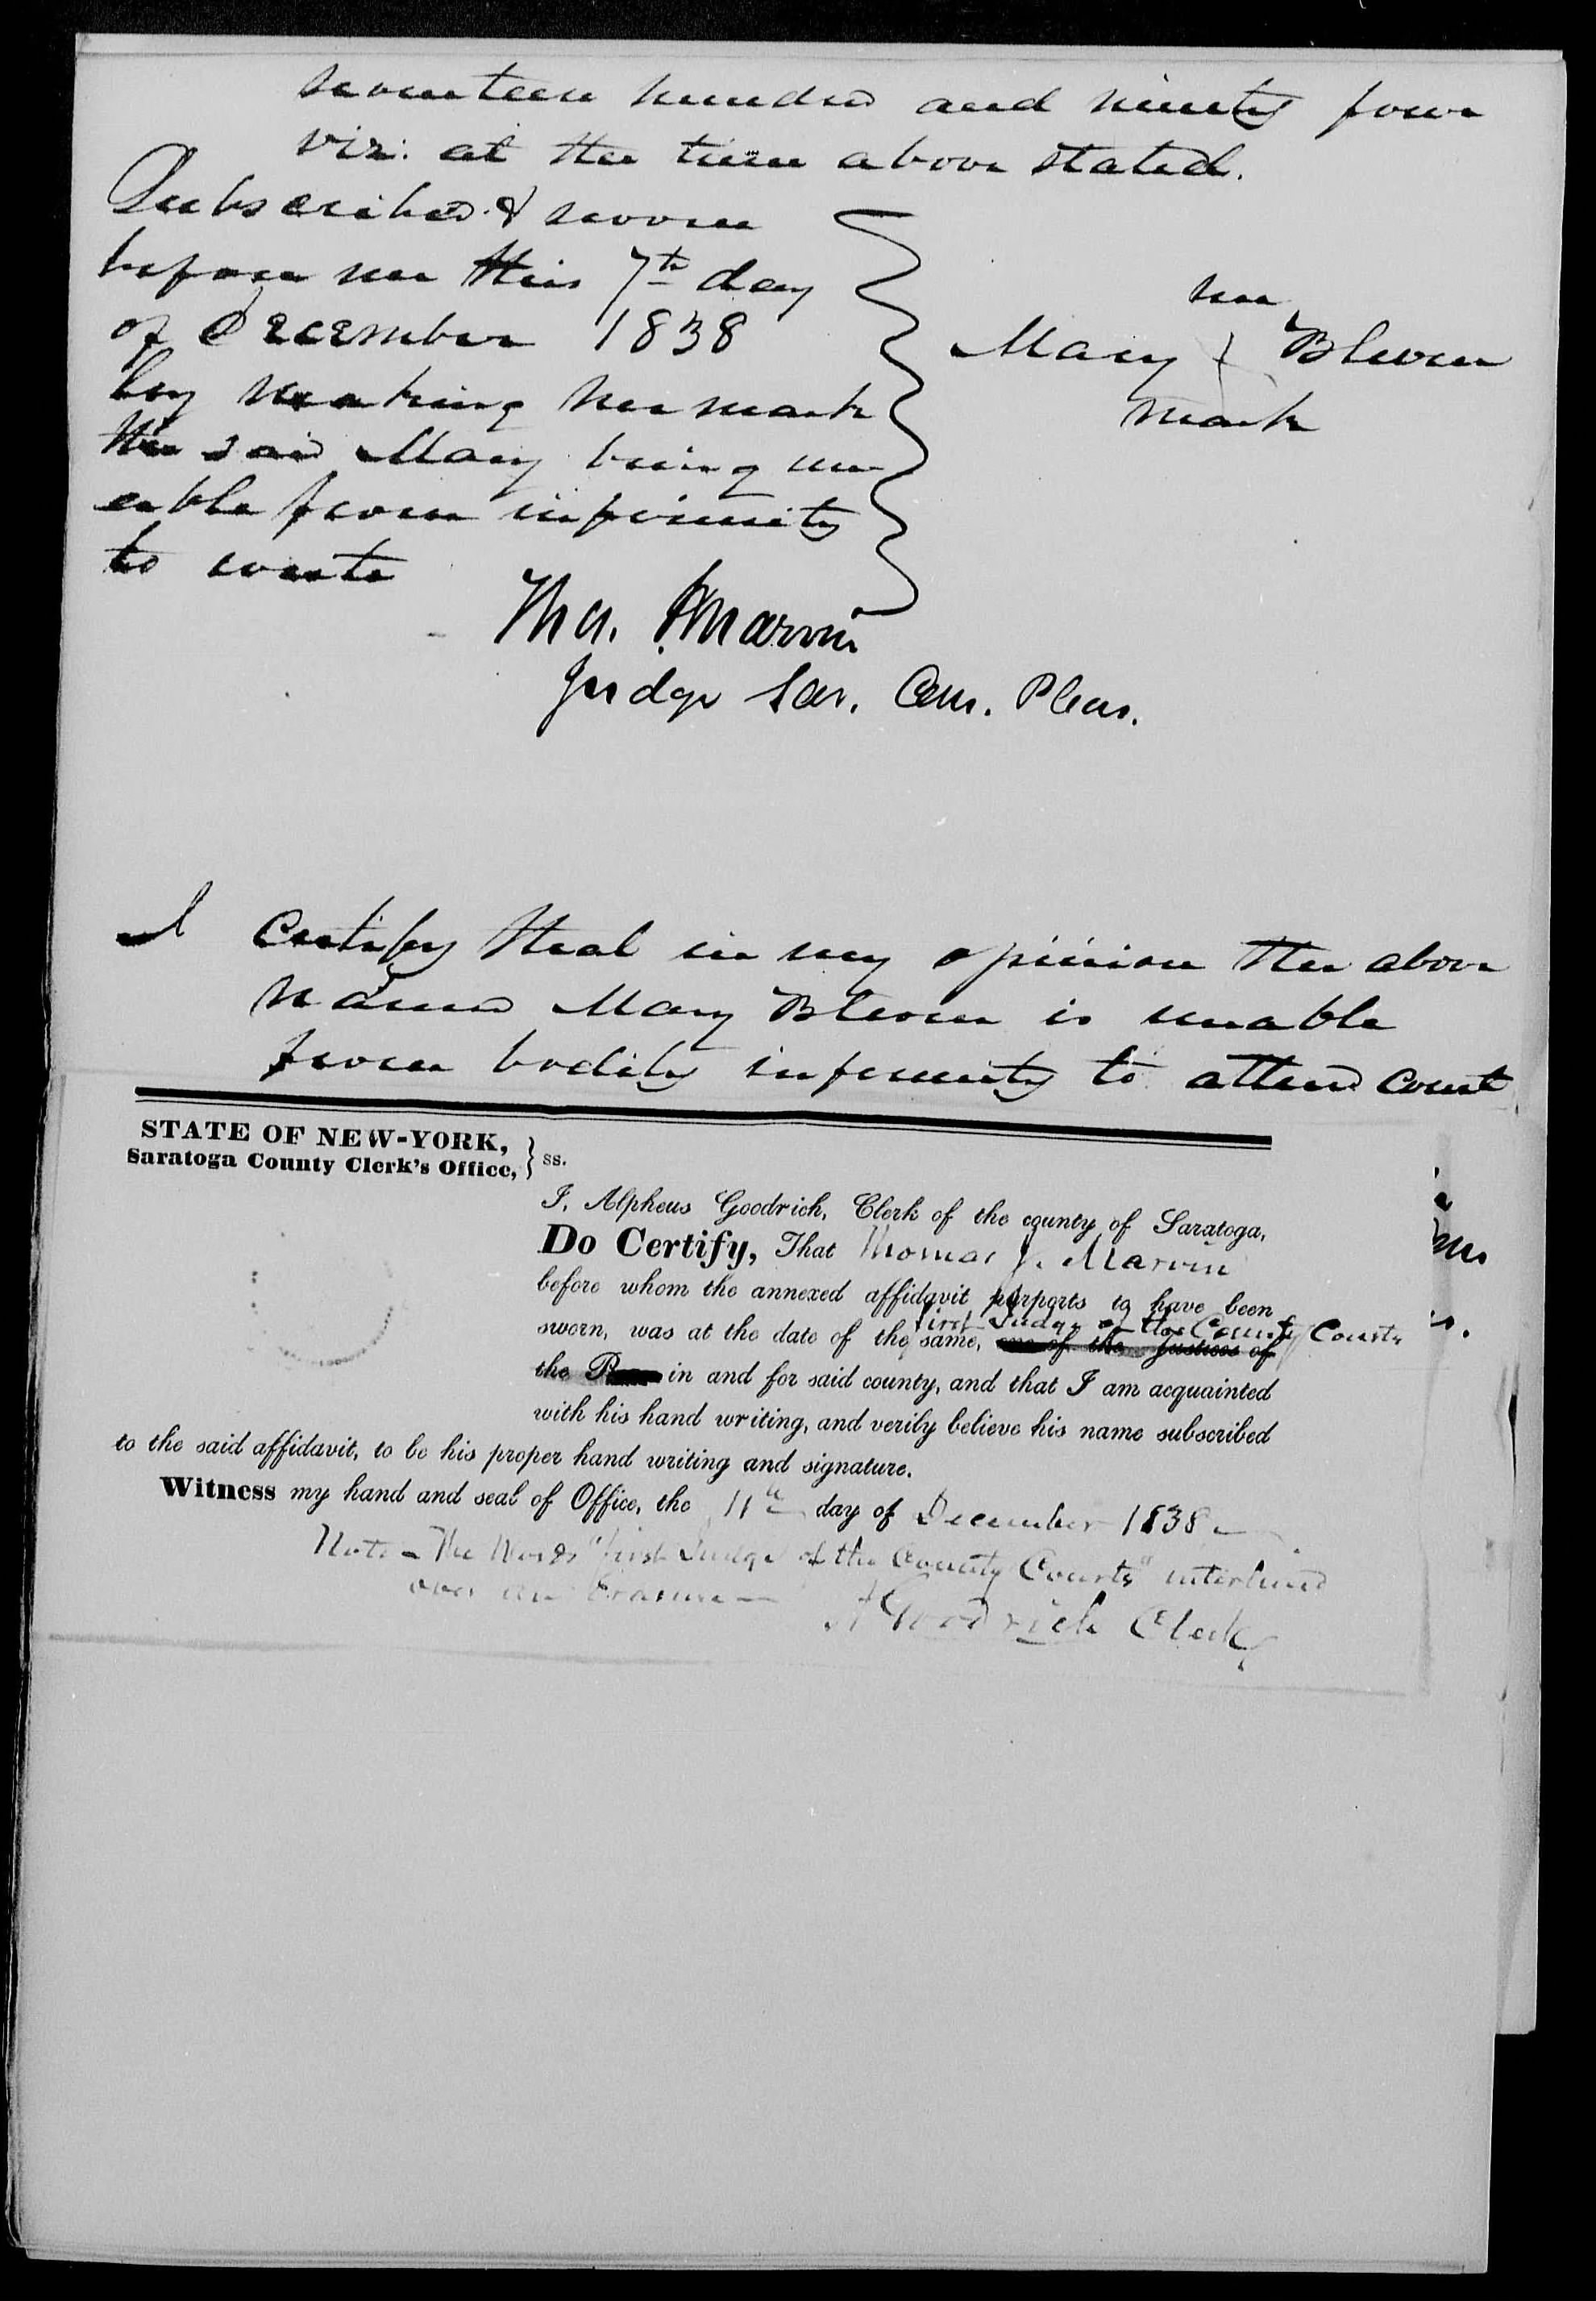 seventeen hundred and ninety four
viz: at the time above stated.
Subscribed & sworn
before me this 7th day
of December 1838
by making her mark
the said Mary being un
able from infirmity
to write
her
Mary Bloom
mark
Tho. J Marvin
Judge Sar. Com. Pleas.
I certify that in my opinion the above
named Mary Bloom is unable
from bodily infirmity to attend court
STATE OF NEW-YORK,
Saratoga County Clerk's Office, } ss.
I, Alpheus Goodrich, Clerk of the county of Saratoga,
Do Certify, That Thomas J. Marvin
before whom the annexed affidavit purports to have been
first Judge of the County Courts
sworn, was at the date of the same, one of the Justices of
the in and for said county, and that I am acquainted
with his hand writing, and verily believe his name subscribed
to the said affidavit, to be his proper hand writing and signature.
Witness my hand and seal of Office, the 11th day of December 1838
Note - The Words "first Judge of the County Courts" interlined
over an Erasure -
A Goodrich Clerk